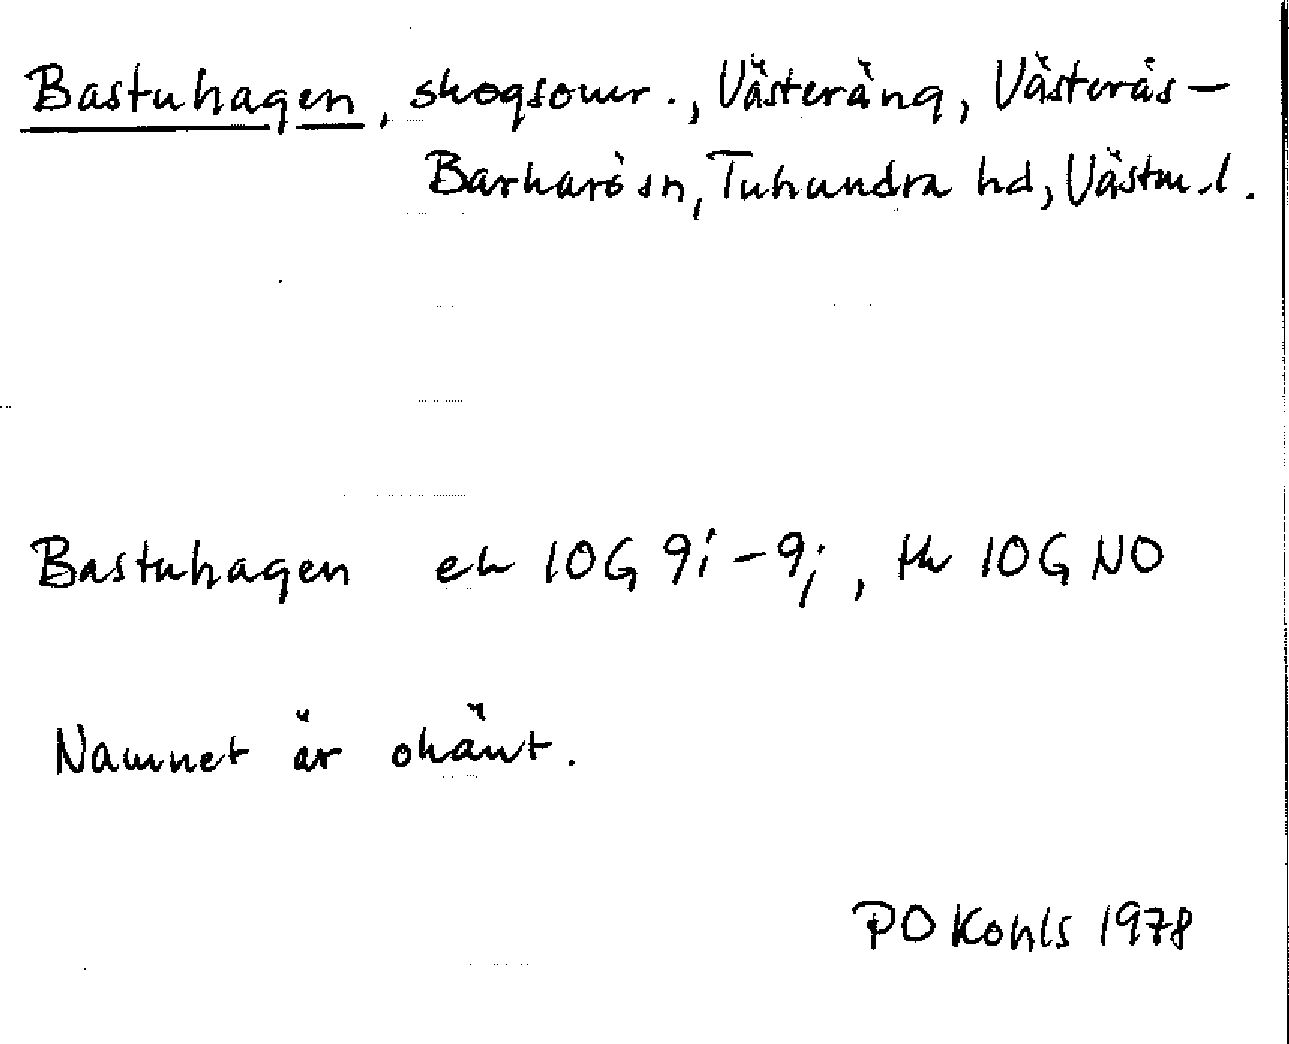 Bastuhagen, skogsomr., Västeräng, Västerås-
Barkarö sn, Tuhundra hd, Västm.l.
Bastuhagen ek 10G 9i-9j, tk 10G NO
Namnet är okänt.
PO Kohls 1978